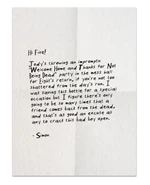 Hi Fire!
Jody's throwing an impromptu
"Welcome Home and Thanks for Not
Being Dead" party in the mess hall
for Eight's return, if you're not too
shattered from the day's run. I
was saving this bottle for a special
occasion but I figure there's only
going to be so many times that a
friend comes back from the dead,
and that's as good an excuse as
any to crack this bad boy open.
- Simon